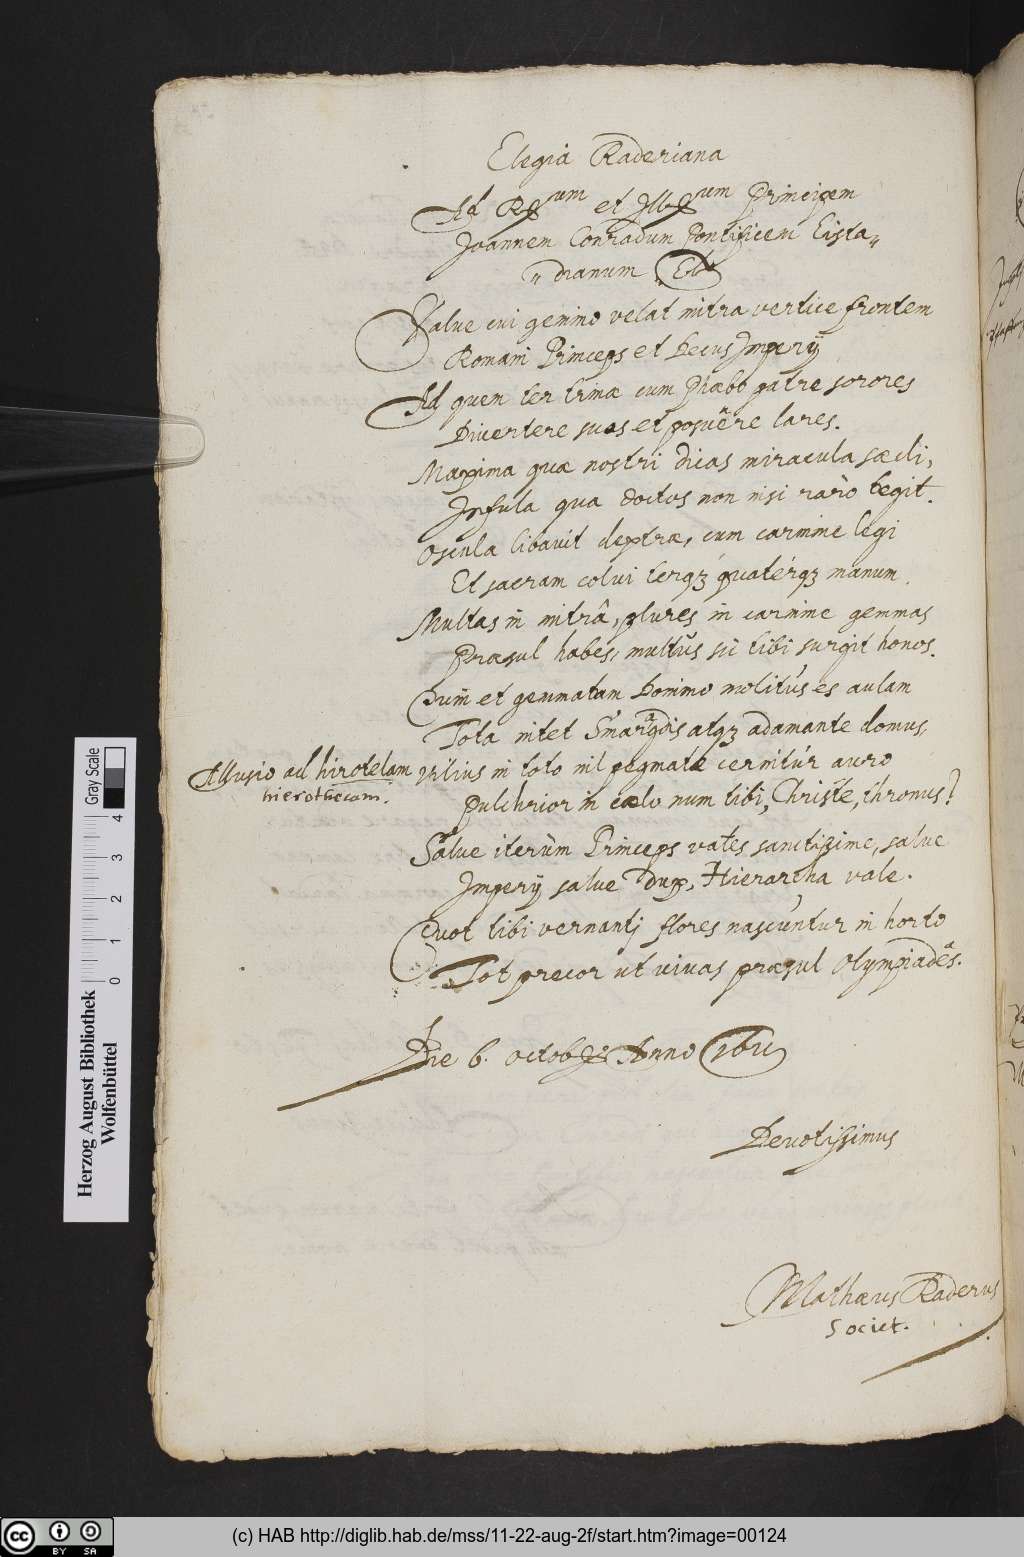 Elegia Raderiana
Ad Rm̃um et Illm̃um Principem
Joannem Conradum Pontificem Eista„
„dianum &c
Salue cui gemino velat mitra vertice frontem
Romani Princeps et Decus Imperÿ
Ad quem ter trinæ cum Phæbo patre sorores
Divertere suos et posuêre lares.
Maxima quæ nostri dicas miracula sæcli,
Insula qua doctos non nisi rarò tegit.
Oscula libauit dextræ, cum carmine legi
Et sacram colui terqʒ quatérqʒ manum.
Multas in mitrâ, plures in carmine gemmas
Præsul habes, multus sic tibi surgit honos.
Dum et gemmatam Domino molitus es aulam
Tota nitet Smaragdis atqʒ adamante domus,
Allusio ad hirotelam
hierothecam.
vilius in toto nil pegmate cernitur auro
Pulchrior in cælo num tibi, Christe, thronus?
Salue iterùm Princeps vates sanctissime, salue
Imperÿ salue Dux, Hierarcha vale.
Quot tibi vernantj flores nascuntur in horto
Tot precor ut viuas præsul Olympiadês.
Die 6. octobr: Anno 1611
Deuotissimus
Mathæus Raderus
Societ.
Herzog August Bibliothek
Wolfenbüttel
Gray Scale
0 1 2 3 4
cc BY SA
(c) HAB http://diglib.hab.de/mss/11-22-aug-2f/start.htm?image=00124